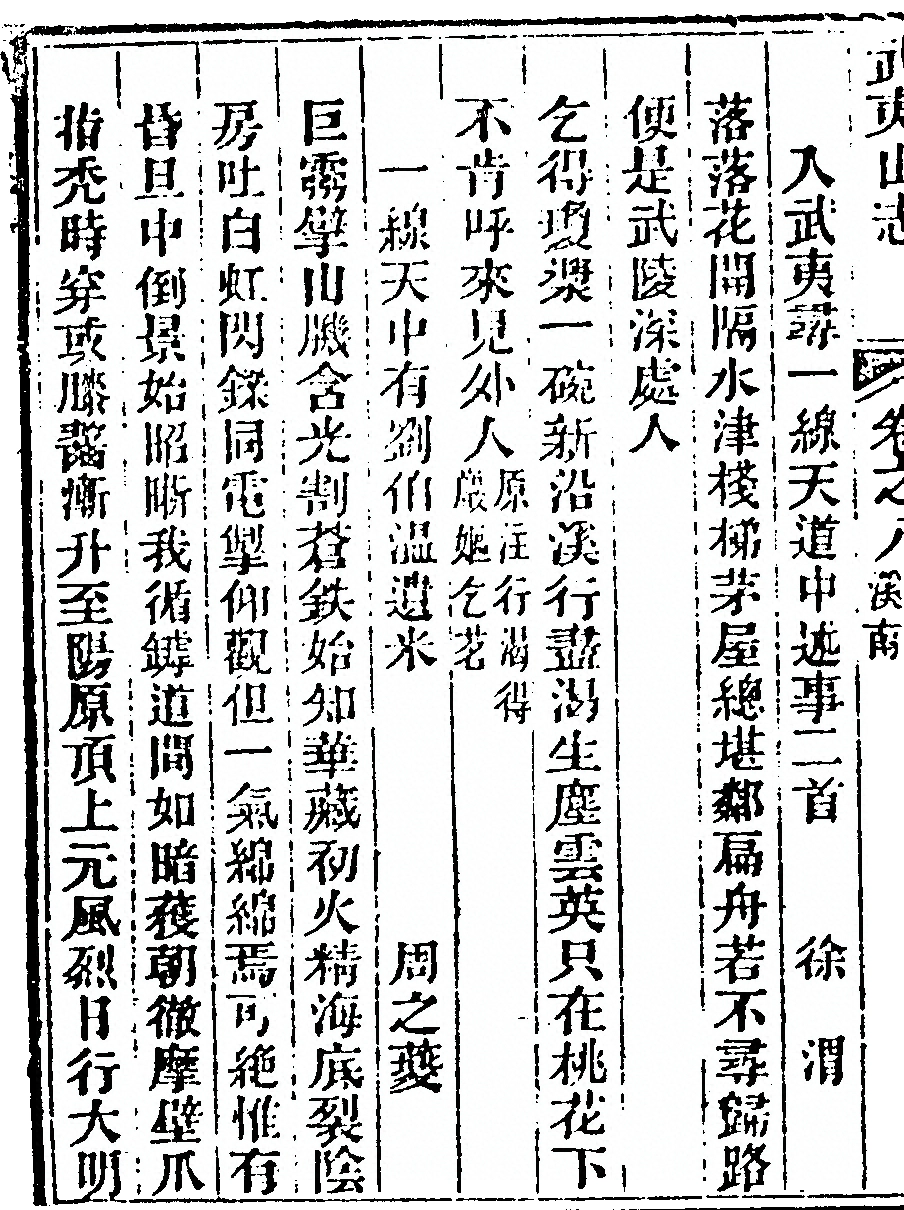 武夷山志 卷之八 溪南
入武夷尋一線天道中述事二首 徐渭
落落花開隔水津棧梯茅屋總堪鄰扁舟若不尋歸路
便是武陵深處人
乞得瓊漿一碗新沿溪行盡渴生塵雲英只在桃花下
不肯呼來見外人原注行渴得巖嫗乞茗
一線天中有劉伯溫遺米 周之夔
巨靈擘山膁含光割蒼鉄始知華藏初火精海底裂陰
房吐白虹閃鑠同電掣仰觀但一氣綿綿焉可絶惟有
昏旦中倒景始昭晣我循罅道間如暗獲朝徹摩壁爪
指禿時穿或膝齧漸升至陽原頂上元風烈日行大明